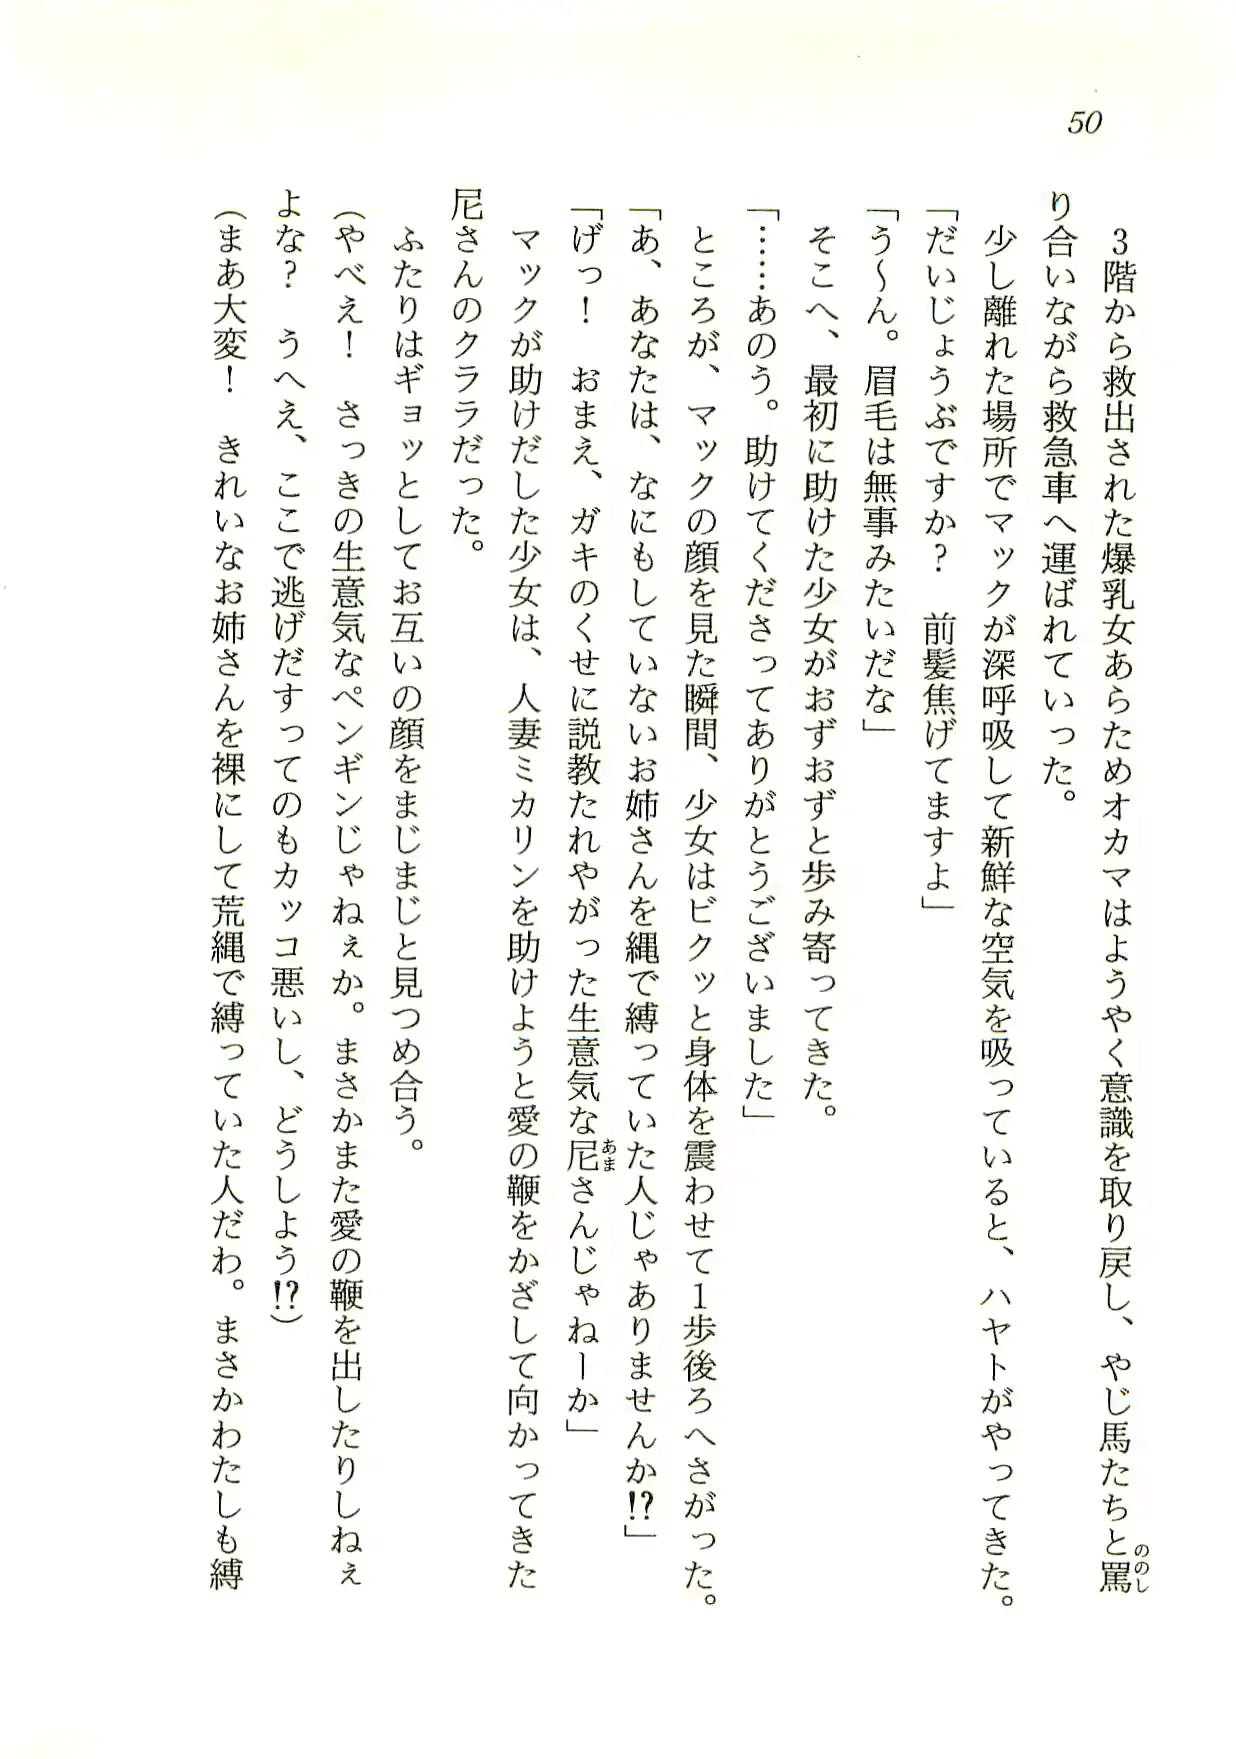 50
3階から救出された爆乳女あらためオカマはようやく意識を取り戻し、やじ馬たちと罵ののし
り合いながら救急車へ運ばれていった。
少し離れた場所でマックが深呼吸して新鮮な空気を吸っていると、ハヤトがやってきた。
「だいじょうぶですか？　前髪焦げてますよ」
「う〜ん。眉毛は無事みたいだな」
そこへ、最初に助けた少女がおずおずと歩み寄ってきた。
「……あのう。助けてくださってありがとうございました」
ところが、マックの顔を見た瞬間、少女はビクッと身体を震わせて1歩後ろへさがった。
「あ、あなたは、なにもしていないお姉さんを縄で縛っていた人じゃありませんか!?」
「げっ！　おまえ、ガキのくせに説教たれやがった生意気な尼あまさんじゃねーか」
マックが助けだした少女は、人妻ミカリンを助けようと愛の鞭をかざして向かってきた
尼さんのクララだった。
ふたりはギョッとしてお互いの顔をまじまじと見つめ合う。
（やべえ！　さっきの生意気なペンギンじゃねぇか。まさかまた愛の鞭を出したりしねぇ
よな？　うへえ、ここで逃げだすってのもカッコ悪いし、どうしよう!?）
（まあ大変！　きれいなお姉さんを裸にして荒縄で縛っていた人だわ。まさかわたしも縛